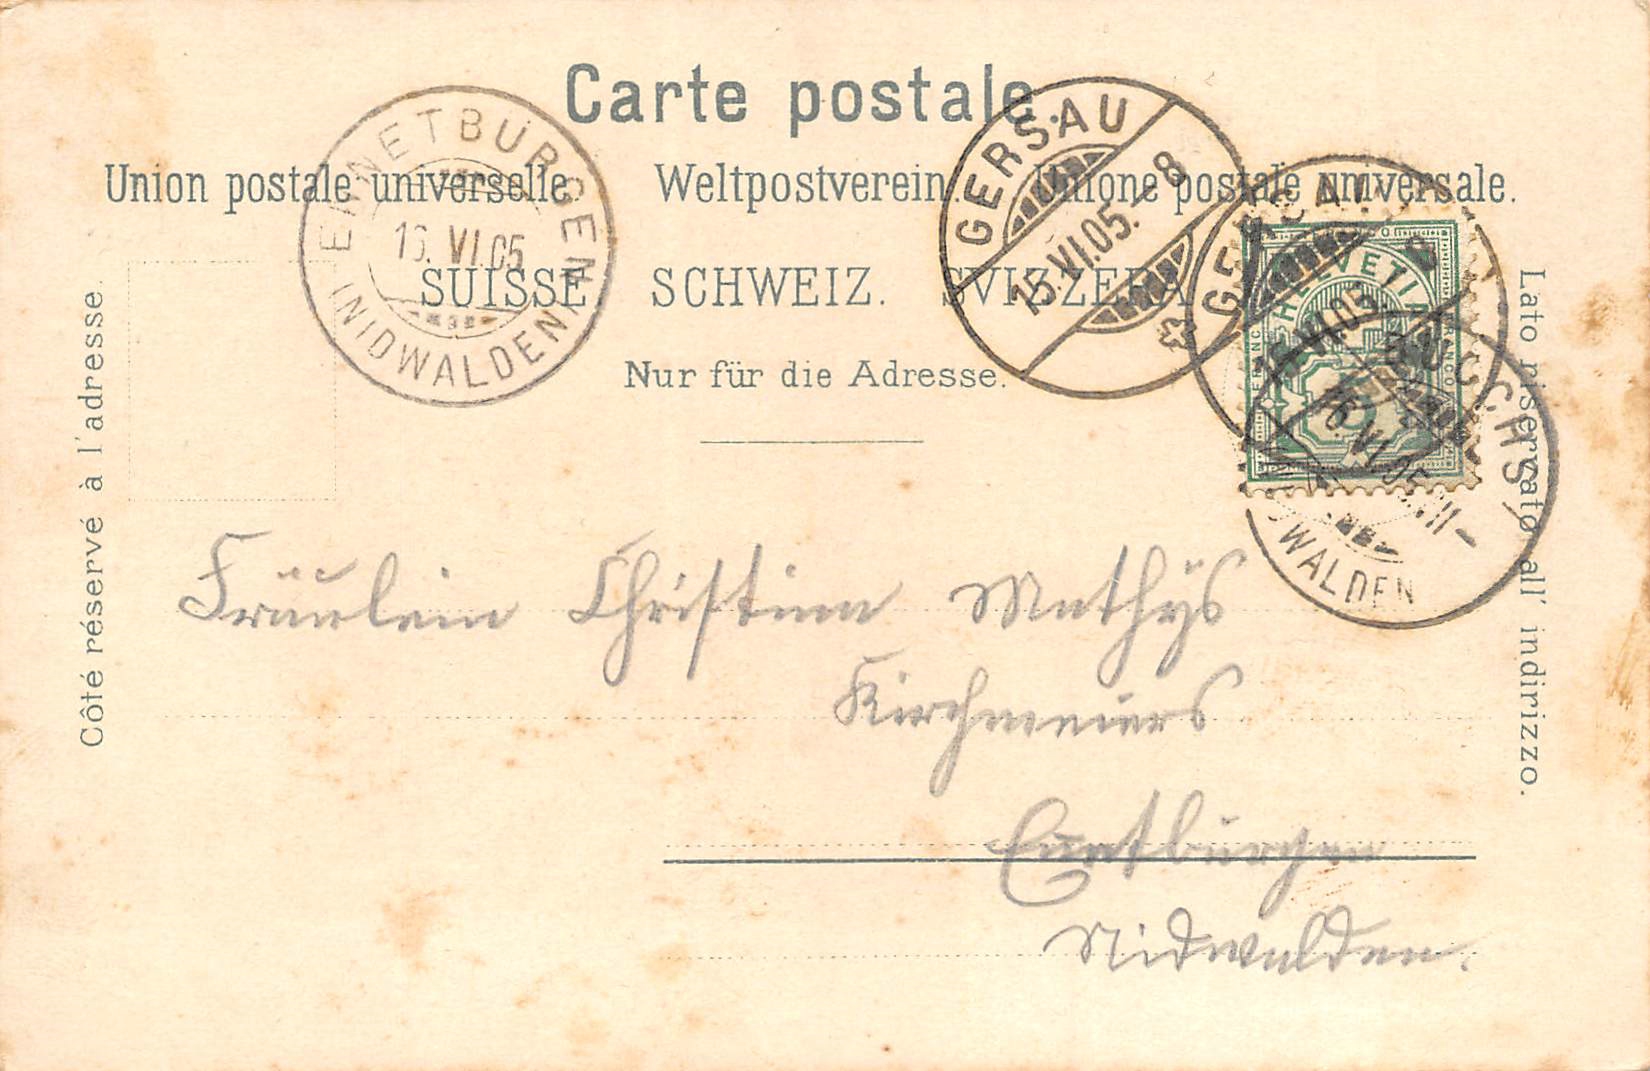 Carte postale.
Union postale universelle. Weltpostverein. Unione postale universale.
SUISSE. SCHWEIZ. SVIZZERA.
Nur für die Adresse.
Côté réservé à l'adresse.
Lato riservato all' indirizzo.
ENNETBÜRGEN
16. VI. 05
(NIDWALDEN)
GERSAU
15. VI. 05. – 8
GERSAU
VI. 05
HELVETIA
FRANCO
5
BUOCHS
16. VI. 05. VII –
NIDWALDEN
Fräulein Christina Mathys
Kirchmeiers
Nidwalden.